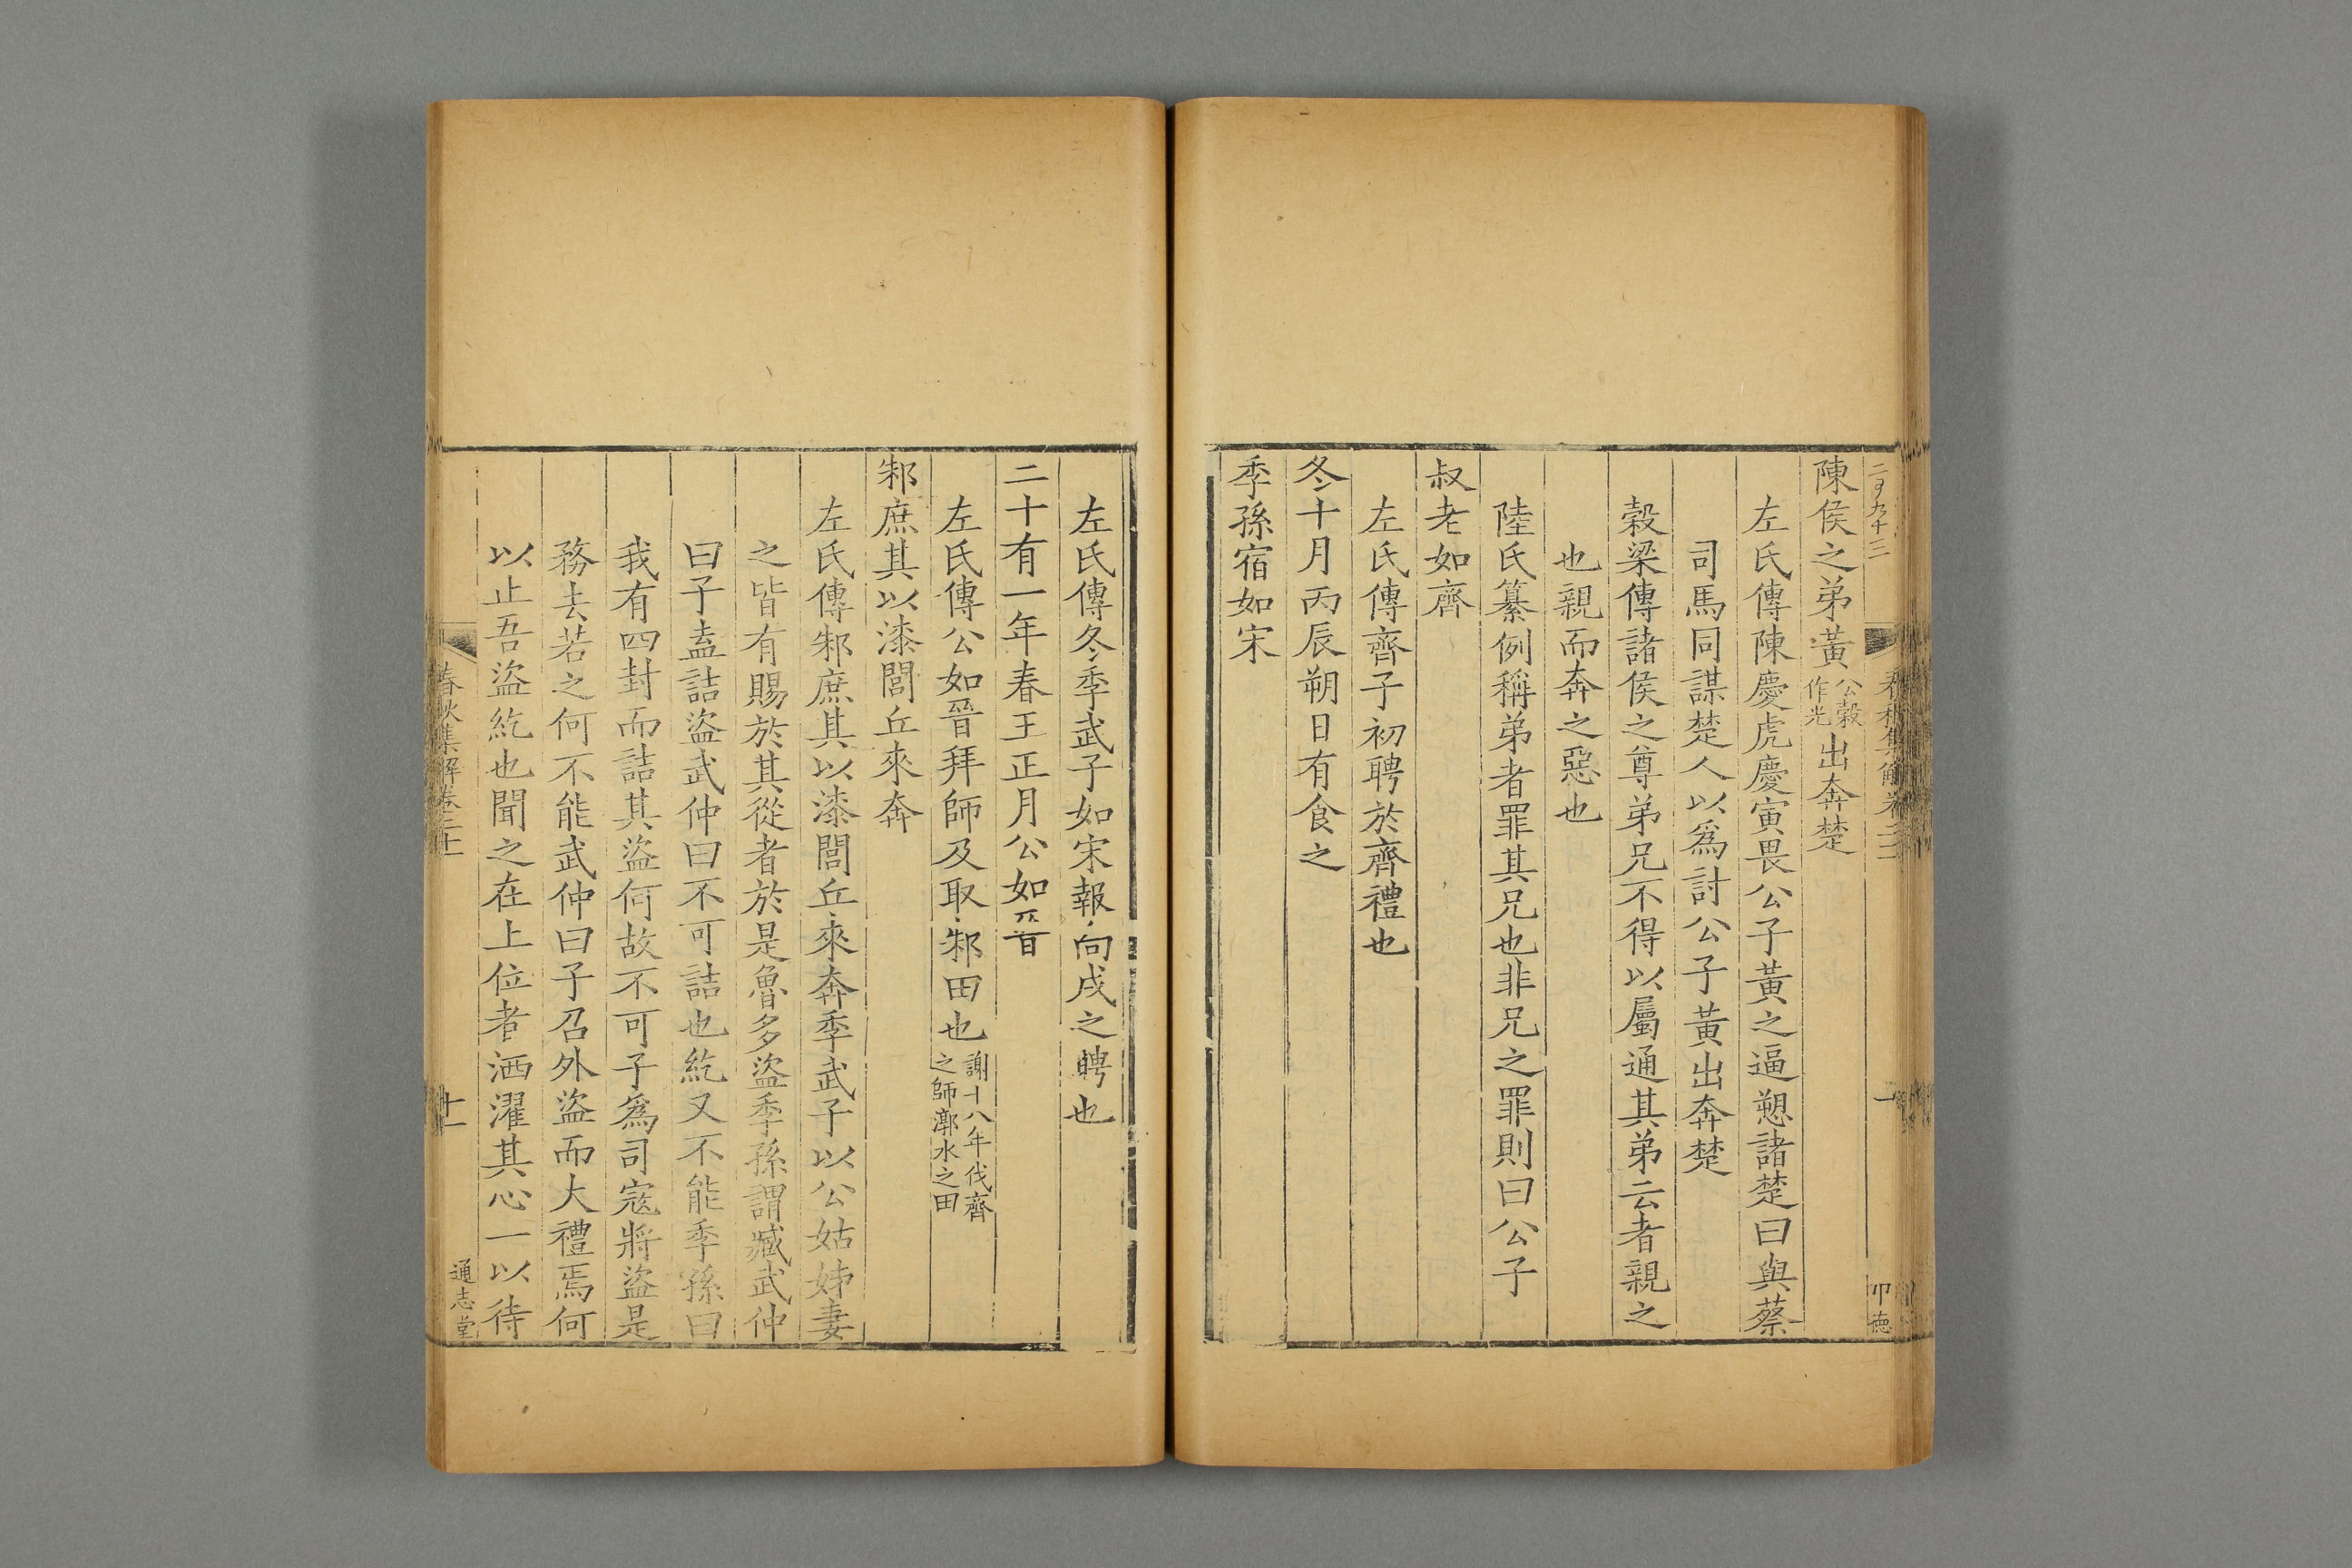 陳侯之弟黃公穀作光出奔楚
左氏傳陳慶虎慶寅畏公子黃之逼愬諸楚曰與蔡
司馬同謀楚人以爲討公子黃出奔楚
穀梁傳諸侯之尊弟兄不得以屬通其弟云者親之
也親而奔之惡也
陸氏纂例稱弟者罪其兄也非兄之罪則曰公子
叔老如齊
左氏傳齊子初聘於齊禮也
冬十月丙辰朔日有食之
季孫宿如宋
左氏傳冬季武子如宋報向戌之聘也
二十有一年春王正月公如晉
左氏傳公如晉拜師及取邾田也謝十八年伐齊之師漷水之田
邾庶其以漆閭丘來奔
左氏傳邾庶其以漆閭丘來奔季武子以公姑姊妻
之皆有賜於其從者於是魯多盜季孫謂臧武仲
曰子盍詰盜武仲曰不可詰也紇又不能季孫曰
我有四封而詰其盜何故不可子爲司寇將盜是
務去若之何不能武仲曰子召外盜而大禮焉何
以止吾盜紇也聞之在上位者洒濯其心一以待
春秋集解卷二十
十一
通志堂